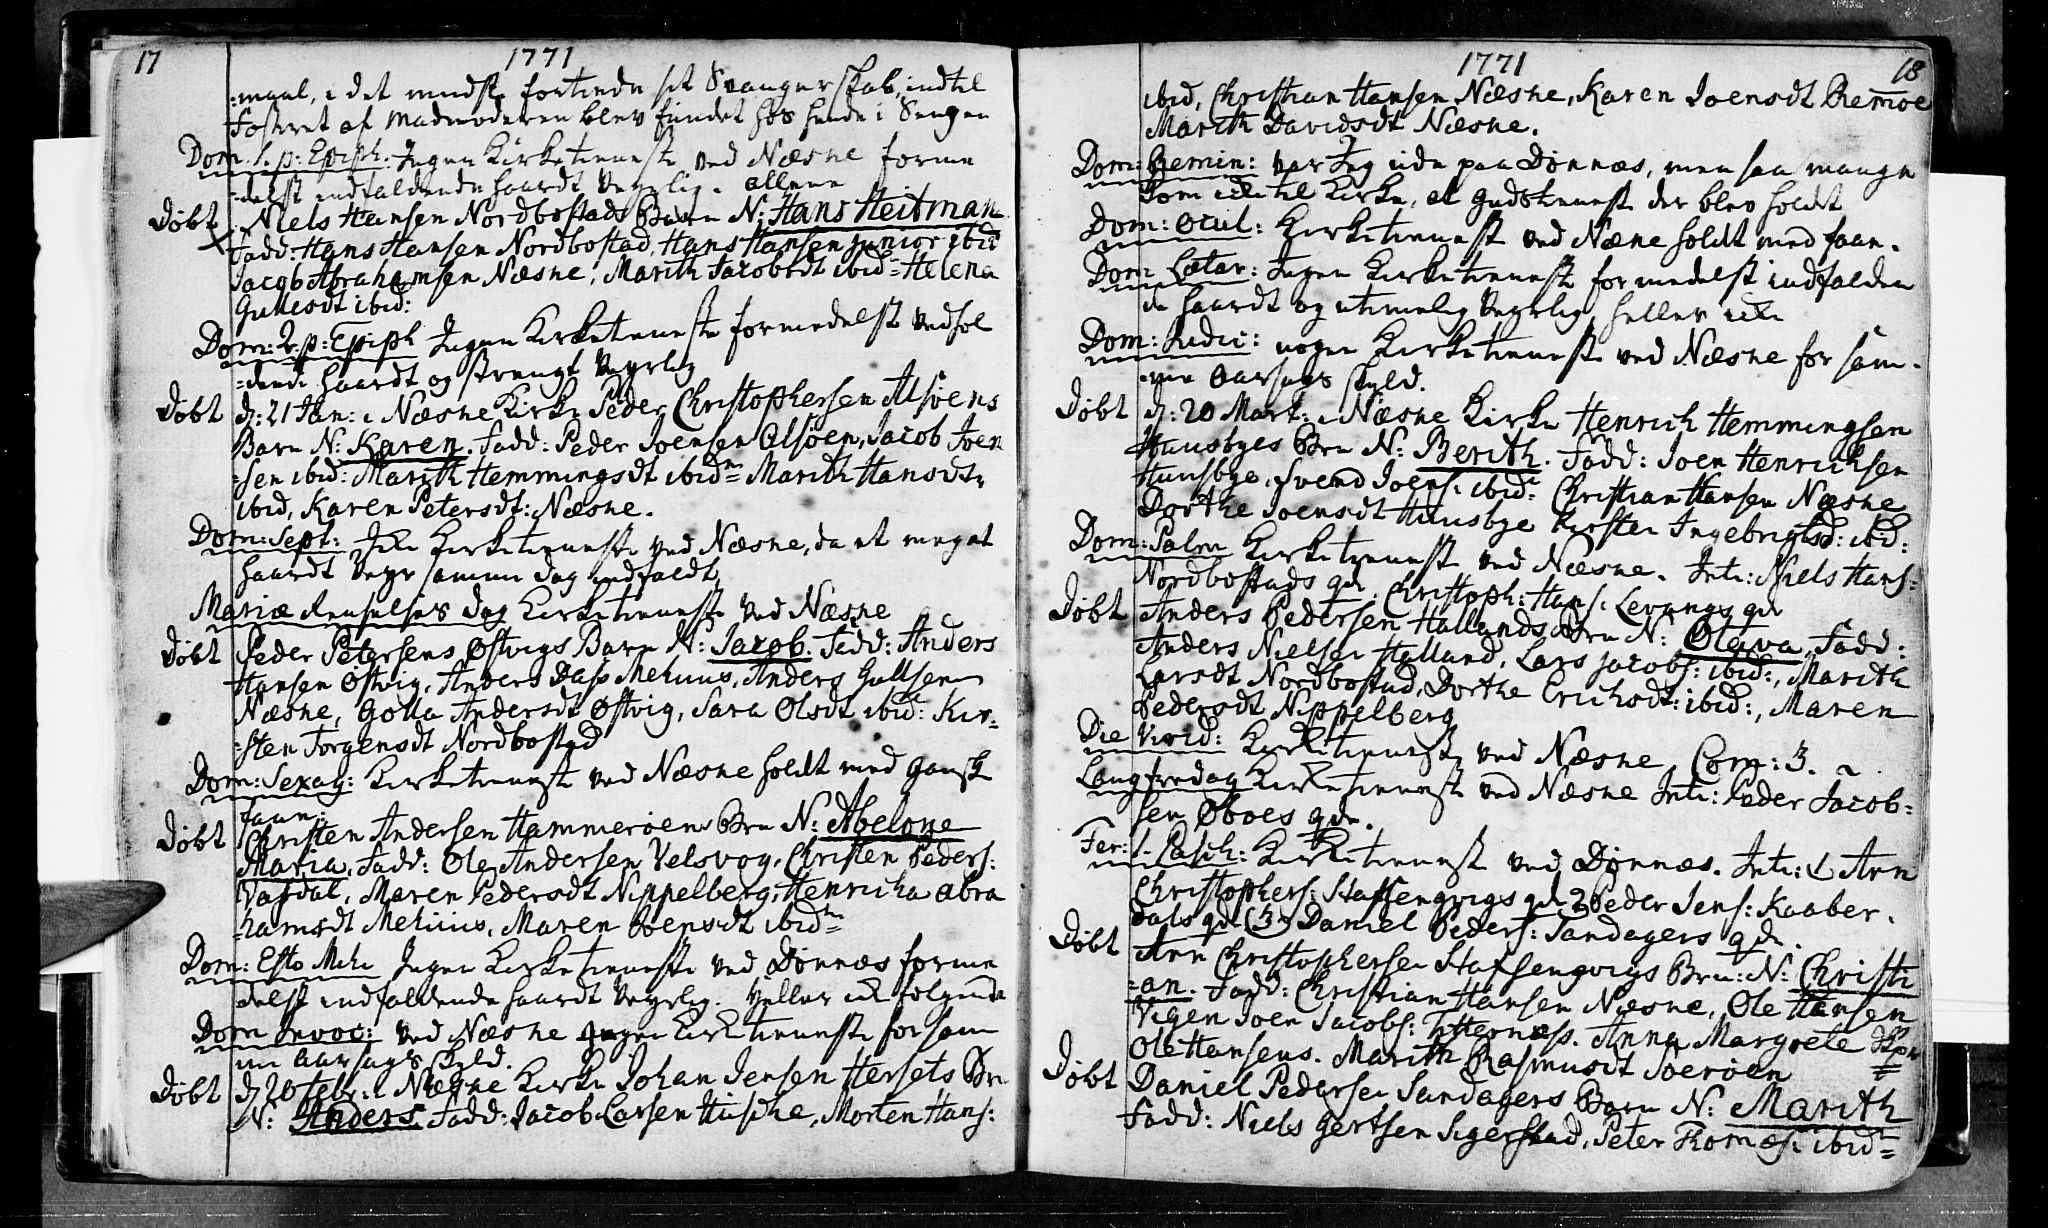 17
1771
-maal, i det mindste fortiede sit Svangerskab, indtil
Fostret af Madmoderen blev fundet hos hende i Sengen
Dom: 1. p: Epiph: Ingen Kirketieneste ved Næsne forme
-delst indfaldende haardt Veyrlig. allene
Døbt Niels Hansen Nordbostads Barn N: Hans Heitman
Fadd: Hans Hansen Nordbostad, Hans Hansen junior ibid
Jacob Abrahamsen Næsne, Marith Jacobsdt ibid= Helena
Gullesdt ibid:
Dom: 2. p: Epiph Ingen Kirketieneste formedelst vedhol
-dende haardt og strengt Veyrlig
Døbt d: 21 Jan: i Næsne Kirke Peder Christophersen Alsøens
Barn N: Karen. Fadd: Peder Joensen Alsøen, Jacob Joen
-sen ibid: Marith Hemmingsdt ibidm Marith Hansdt.
ibid, Karen Petersdt: Næsne.
Dom: Sept: Ike Kirketieneste ved Næsne, da et meget
haardt Veyr samme dag indfaldt.
Mariæ Renselses dag Kirketieneste ved Næsne
Døbt Peder Petersens Østvigs Barn N: Jacob. Fadd: Anders
Hansen Østvig, Anders Dass Mehuus, Anders Gullsen
Næsne, Golla Andersdt Østvig, Sara Olsdt ibid: Kir-
-sten Jørgensdt Nordbostad
Dom: Sexag: Kirketieneste ved Næsne holdt med gansk
faae:
Døbt Christen Andersen Hammerøens Brn N: Abelone
Maria. Fadd: Ole Andersen Velsvog, Christen Peders:
Vassdal, Maren Pedersdt Nippelberg, Henricha Abra
-hamsdt Mehuus, Maren Joensdt ibidm
Dom: Esto Mihi Ingen Kirketieneste ved Dønnæs forme
delst indfaldende haardt Veyrlig. Heller ik følgende
Dom Invoc: ved Næsne ingen Kirketieneste for sam
me Aarsags Skyld.
Døbt d 20 Febr: i Næsne Kirke Johan Jensen Hersets Brn
N: Anders. Fadd: Jacob Larsen Husbye, Morten Hans:
1771
18
ibid, Christian Hansen Næsne, Karen Joensdt Remøe
Marith Davidsdt Næsne.
Dom: Remin: var Jeg ude paa Dønnæs, men saa mange
kom ik til Kirke, at gudstieneste der blev holdt
Dom: Ocul: Kirketieneste ved Næsne holdt med faae.
Dom Lætar: Ingen Kirketieneste formedelst indfalden
de haardt og utimelig Veyrlig, heller ike
Dom: Judic: nogen Kirketieneste ved Næsne for sam-
-me Aarsags skyld.
Døbt d: 20 Mart: i Næsne Kirke Henrich Hemmingsen
Huusbyes Brn N: Berith. Fadd: Joen Henrichsen
Huusbye, Svend Joens: ibid: Christian Hansen Næsne
Dorthe Joensdt Huusbye Kirsten Ingebrigtsd: ibid:
Dom: Palm Kirketieneste ved Næsne. Intr: Niels Hans:
Nordbostads qd. Christoph: Hans: Levangs qd
Døbt Anders Pedersen Hallands Brn N: Olava, Fadd:
Anders Nielsen Halland, Lars Jacobs: ibid:, Marith
Larsdt Nordbostad, Dorthe Erichsdt: ibid:, Maren
Pedersdt Nippelberg
Die Virid: Kirketieneste ved Næsne Com: 3.
Langfredag Kirketieneste ved Næsne Intr: Peder Jacob-
sen Øboes qd.
Fer: 1. Pasch: Kirketieneste ved Dønnæs. Intr: 1 Arn
Christophers: Staffengvigs qd 2 Peder Jens: Kaaber.
dals qd (3) Daniel Peders: Sandagers qd.
Døbt Arn Christophersen Stafsengvigs Brn: N: Christi
-an. Fadd: Christian Hansen Næsne, Ole Hansen
Vigen Joen Jacobs: Titternæss. Anna Margrete
Ole Hansens. Marith Rasmusdt Soerøen
Døbt Daniel Pedersen Sandagers Barn N: Marith
Fadd: Niels Gertsen Sigerstad, Peter Thomæs: ibidm